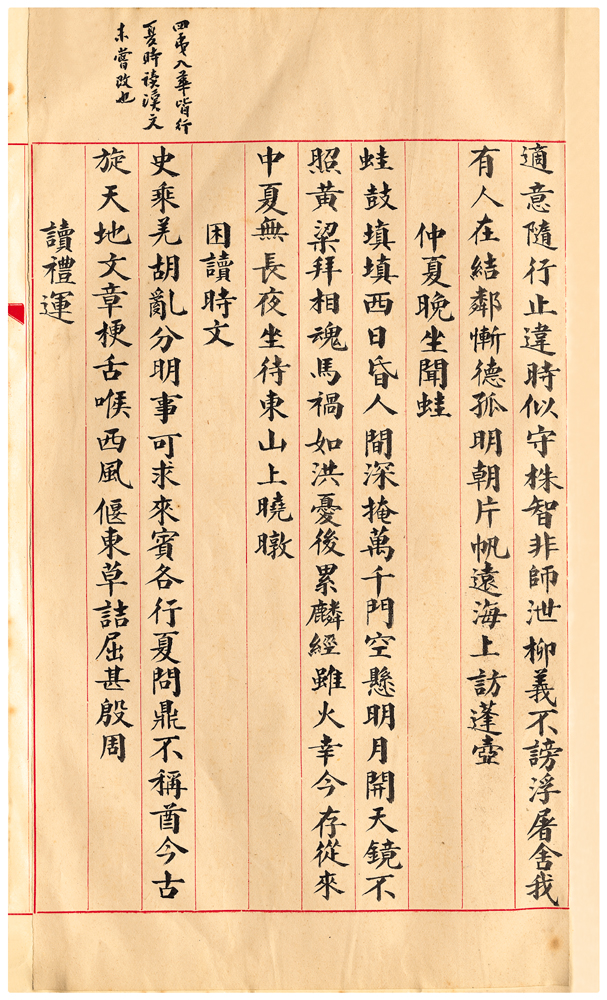 四夷入華皆行
夏時讀漢文
未嘗改也
適意隨行止違時似守株智非師泄柳義不謗浮屠舍我
有人在結鄰慚德孤明朝片帆遠海上訪蓬壺
仲夏晚坐聞蛙
蛙鼓填填西日昏人間深掩萬千門空懸明月開天鏡不
照黃粱拜相魂馬禍如洪憂後累麟經雖火幸今存從來
中夏無長夜坐待東山上曉暾
困讀時文
史乘羌胡亂分明事可求來賓各行夏問鼎不稱酋今古
旋天地文章梗舌喉西風偃東草詰屈甚殷周
讀禮運